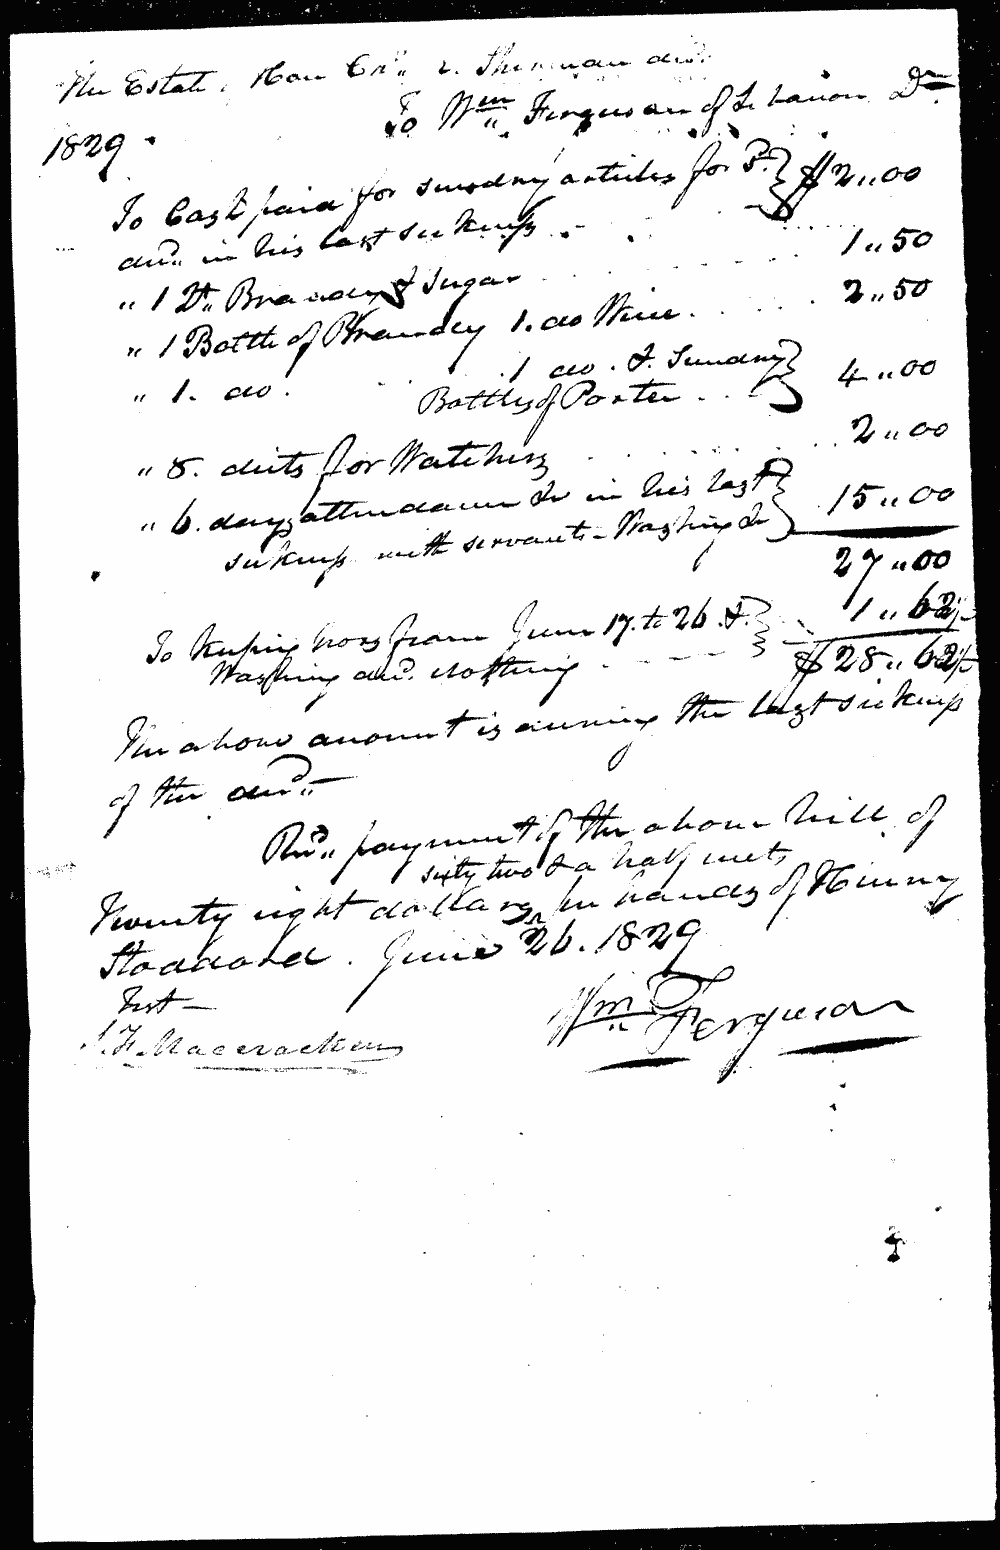 The Estate, Hon Chs. R. Sherman decd.
To Wm Ferguson of Lebanon Dr
1829
To Cash paid for sundry articles for Sd. } $2"00
decd. in his last sickness
" 1 lb. Brandy & Sugar 1"50
" 1 Bottle of Brandy 1. do Wine 2"50
" 1. do. 1 do. & Sundry } 4"00
Bottles of Porter
" 8. diets for Watchers 2"00
" 6. days attendance &c in his last } 15"00
sickness with servants - Washing &c
27"00
To Keeping horse from June 17. to 26. & } 1"62½
Washing decd. clothing $28"62½
The above amount is during the last sickness
of the decd.
Recd. payment of the above bill of
sixty two & a half cents
Twenty eight dollars ^ pr hands of Henry
Stoddard. June 26. 1829
Test Wm Ferguson
J. F. Maccracken